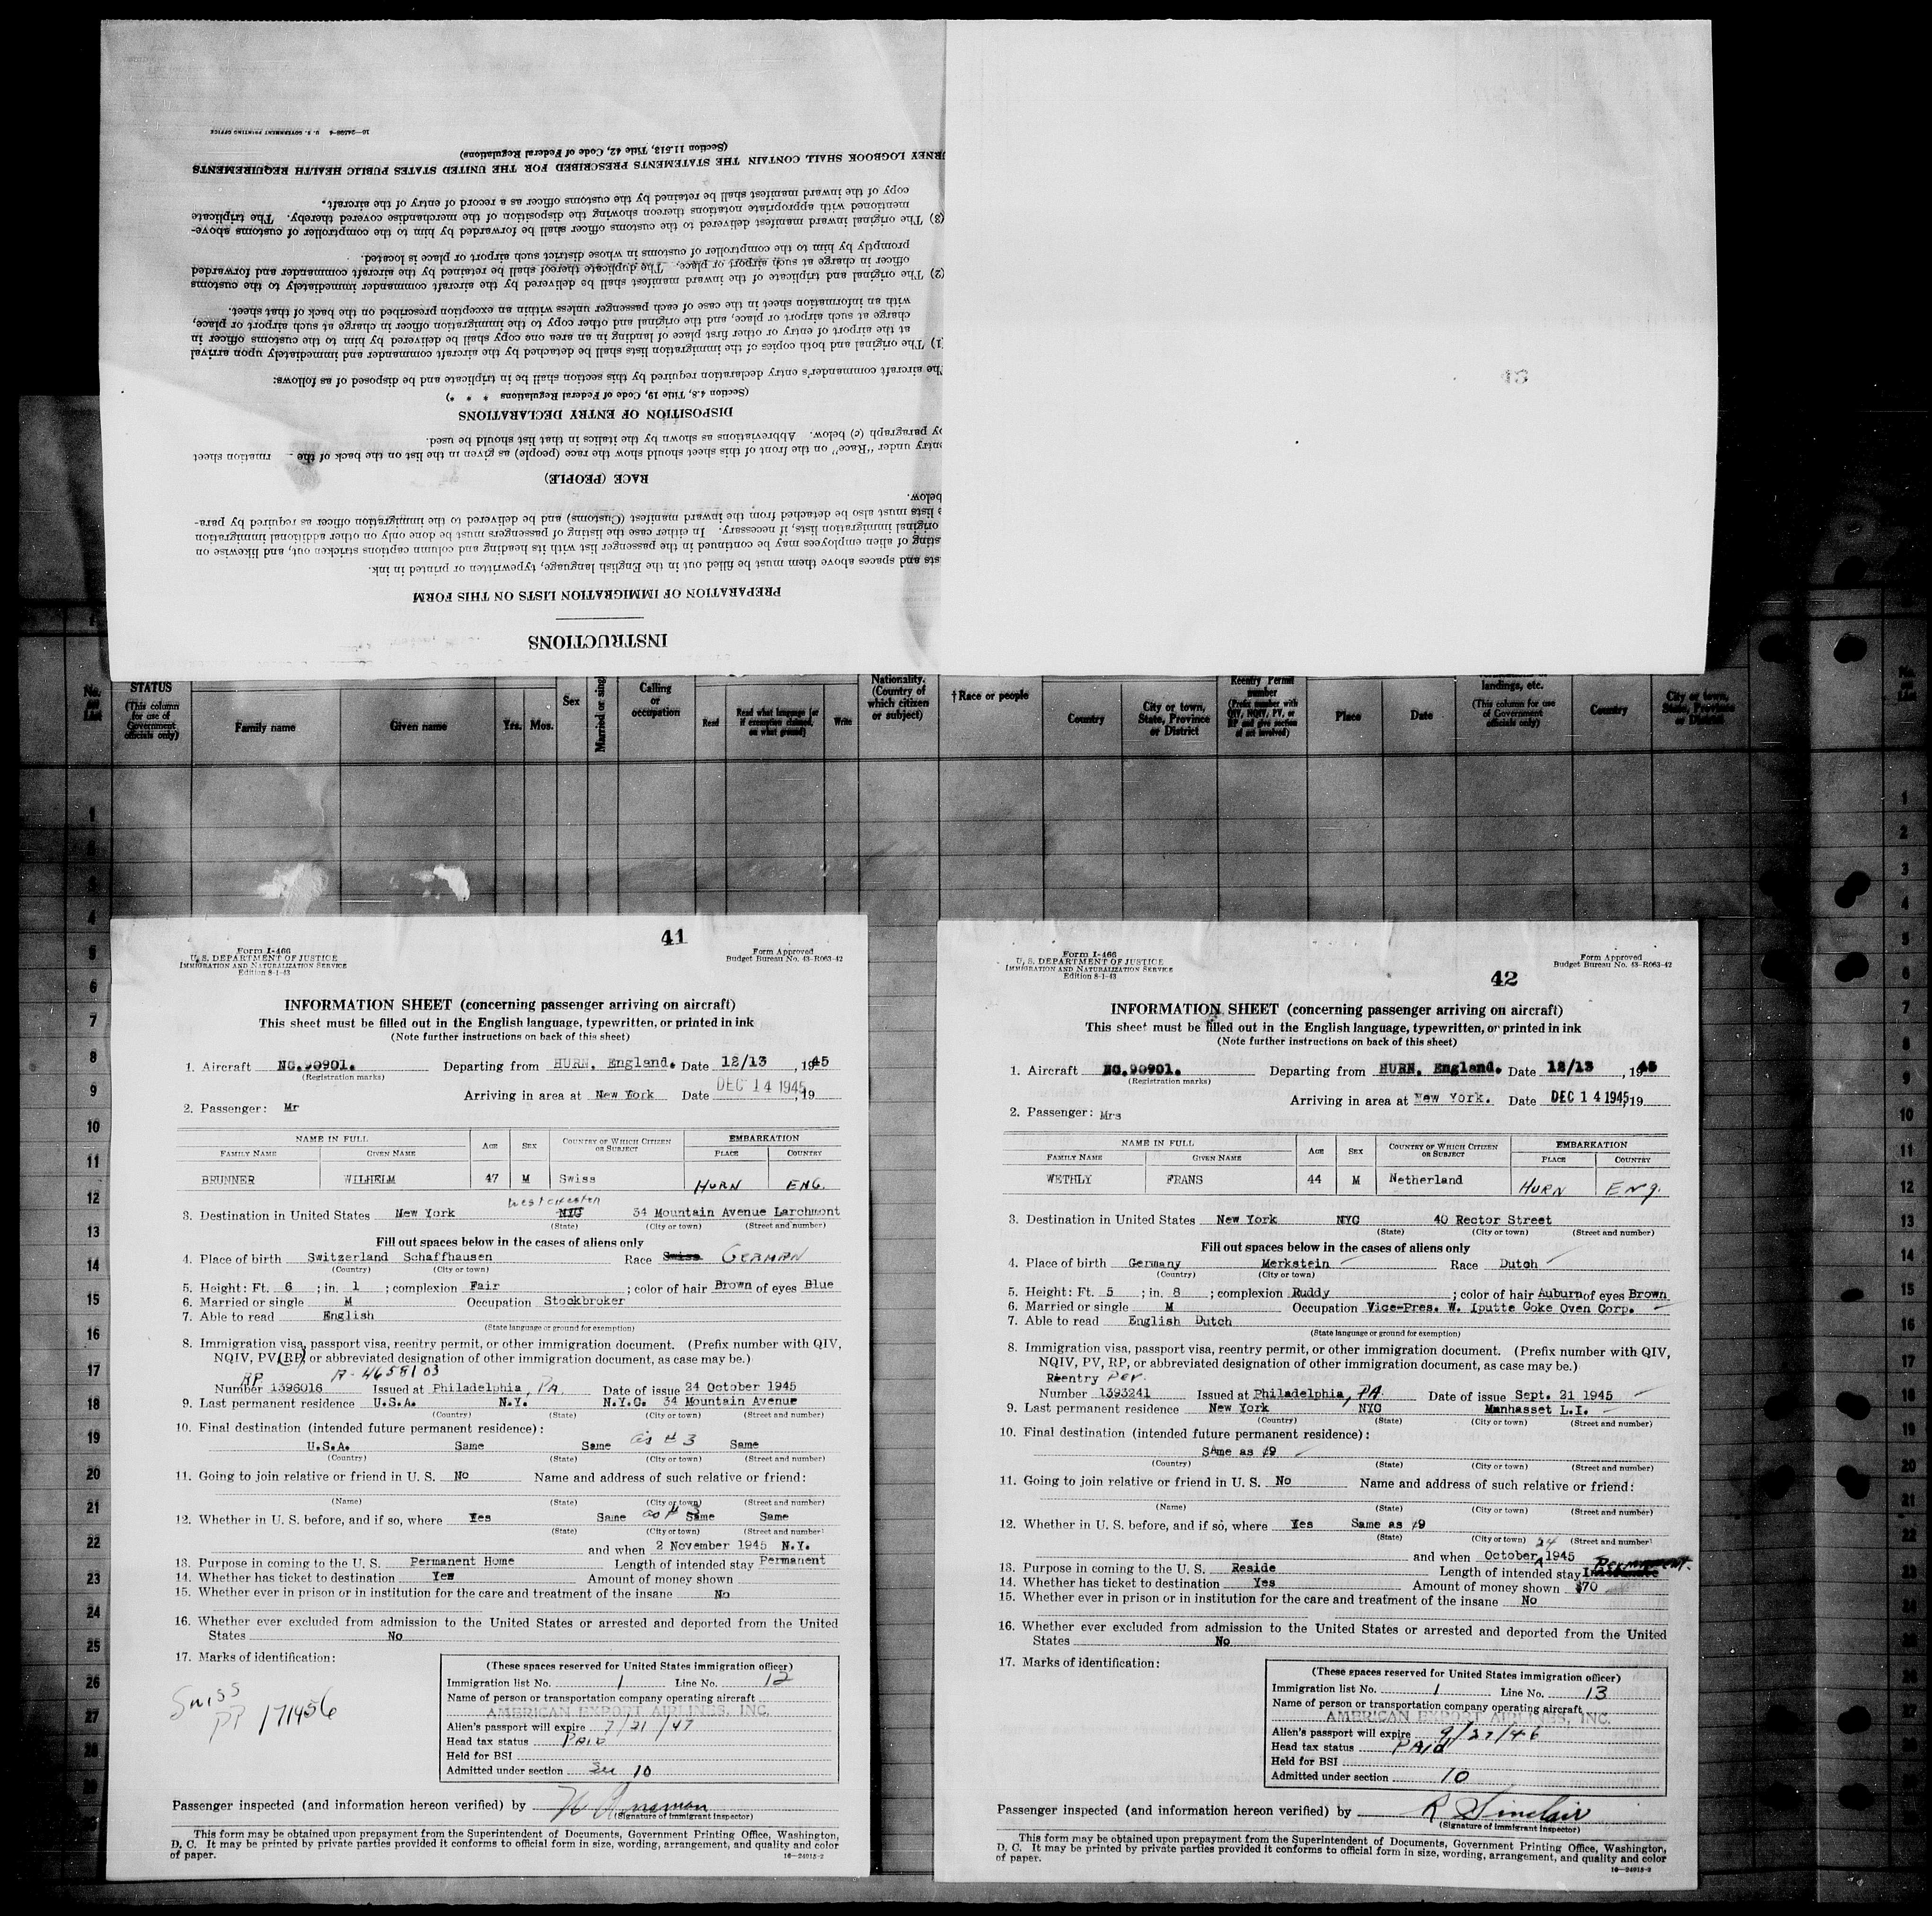 INSTRUCTIONS
PREPARATION OF IMMIGRATION LISTS ON THIS FORM
sts and spaces above them must be filled out in the English language, typewritten or printed in ink.
sting of alien employees may be continued in the passenger list with its heading and column captions stricken out, and likewise on
original immigration lists, if necessary. In either case the listing of passengers must be done only on other additional immigration
e lists must also be detached from the inward manifest (Customs) and be delivered to the immigration officer as required by para-
below.
RACE (PEOPLE)
entry under "Race" on the front of this sheet should show the race (people) as given in the list on the back of the rmation sheet
by paragraph (c) below. Abbreviations as shown by the italics in that list should be used.
DISPOSITION OF ENTRY DECLARATIONS
(Section 4.8, Title 19, Code of Federal Regulations * * *)
The aircraft commander's entry declaration required by this section shall be in triplicate and be disposed of as follows:
1) The original and both copies of the immigration lists shall be detached by the aircraft commander and immediately upon arrival
at the airport of entry or other first place of landing in an area one copy shall be delivered by him to the customs officer in
charge at such airport or place, and the original and other copy to the immigration officer in charge at such airport or place,
with an information sheet in the case of each passenger unless within an exception prescribed on the back of that sheet.
(2) The original and triplicate of the inward manifest shall be delivered by the aircraft commander immediately to the customs
officer in charge at such airport or place. The duplicate thereof shall be retained by the aircraft commander and forwarded
promptly by him to the comptroller of customs in whose district such airport or place is located.
(3) The original inward manifest delivered to the customs officer shall be forwarded by him to the comptroller of customs above-
mentioned with appropriate notations thereon showing the disposition of the merchandise covered thereby. The triplicate
copy of the inward manifest shall be retained by the customs officer as a record of entry of the aircraft.
RNEY LOGBOOK SHALL CONTAIN THE STATEMENTS PRESCRIBED FOR THE UNITED STATES PUBLIC HEALTH REQUIREMENTS
(Section 11.513, Title 42, Code of Federal Regulations)
U. S. GOVERNMENT PRINTING OFFICE
No. on List STATUS (This column for use of Government officials only) Family name Given name Yrs. Mos. Sex Married or sing Calling or occupation Read Read what language (or if exemption claimed, on what ground) Write Nationality. (Country of which citizen or subject) †Race or people Country City or town, State, Province or District Reentry Permit number (Prefix number with QIV, NQIV, PV, or RP and give section of act involved) Place Date landings, etc. (This column for use of Government officials only) Country City or town, State, Province or District
41
Form I-466
U. S. DEPARTMENT OF JUSTICE
IMMIGRATION AND NATURALIZATION SERVICE
Edition 8-1-43
Form Approved
Budget Bureau No. 43-R063-42
INFORMATION SHEET (concerning passenger arriving on aircraft)
This sheet must be filled out in the English language, typewritten, or printed in ink
(Note further instructions on back of this sheet)
1. Aircraft NC.90901. Departing from HURN. England. Date 12/13, 1945
(Registration marks)
Arriving in area at New York Date DEC 14 1945, 19
2. Passenger: Mr
NAME IN FULL AGE SEX COUNTRY OF WHICH CITIZEN OR SUBJECT EMBARKATION
FAMILY NAME GIVEN NAME PLACE COUNTRY
BRUNNER WILHELM 47 M Swiss HURN ENG.
Westchester
3. Destination in United States New York NYC 34 Mountain Avenue Larchmont
(State) (City or town) (Street and number)
Fill out spaces below in the cases of aliens only
4. Place of birth Switzerland Schaffhausen Race Swiss GERMAN
(Country) (City or town)
5. Height: Ft. 6 ; in. 1 ; complexion Fair ; color of hair Brown of eyes Blue
6. Married or single M Occupation Stockbroker
7. Able to read English
(State language or ground for exemption)
8. Immigration visa, passport visa, reentry permit, or other immigration document. (Prefix number with QIV,
NQIV, PV, RP, or abbreviated designation of other immigration document, as case may be.)
RP A-4658103
Number 1396016 Issued at Philadelphia, PA. Date of issue 24 October 1945
9. Last permanent residence U.S.A. N.Y. N.Y.C. 34 Mountain Avenue
(Country) (State) (City or town) (Street and number)
10. Final destination (intended future permanent residence):
U.S.A. Same Same as # 3 Same
(Country) (State) (City or town) (Street and number)
11. Going to join relative or friend in U. S. No Name and address of such relative or friend:
(Name) (State) (City or town) (Street and number)
12. Whether in U. S. before, and if so, where Yes Same as # 3 Same Same
(State) (City or town) (Street and number)
and when 2 November 1945 N.Y.
13. Purpose in coming to the U. S. Permanent Home Length of intended stay Permanent
14. Whether has ticket to destination Yes Amount of money shown
15. Whether ever in prison or in institution for the care and treatment of the insane No
16. Whether ever excluded from admission to the United States or arrested and deported from the United
States No
17. Marks of identification:
Swiss
PP 171456
(These spaces reserved for United States immigration officer)
Immigration list No. 1 Line No. 12
Name of person or transportation company operating aircraft
AMERICAN EXPORT AIRLINES, INC.
Alien's passport will expire 7/21/47
Head tax status Paid
Held for BSI
Admitted under section Sec 10
Passenger inspected (and information hereon verified) by
(Signature of Immigrant Inspector)
This form may be obtained upon prepayment from the Superintendent of Documents, Government Printing Office, Washington,
D. C. It may be printed by private parties provided it conforms to official form in size, wording, arrangement, and quality and color
of paper.
16—24915-2
42
Form I-466
U. S. DEPARTMENT OF JUSTICE
IMMIGRATION AND NATURALIZATION SERVICE
Edition 8-1-43
Form Approved
Budget Bureau No. 43-R063-42
INFORMATION SHEET (concerning passenger arriving on aircraft)
This sheet must be filled out in the English language, typewritten, or printed in ink
(Note further instructions on back of this sheet)
1. Aircraft NC.90901. Departing from HURN. England. Date 12/13, 1945
(Registration marks)
Arriving in area at New York. Date DEC 14 1945, 19
2. Passenger: Mrs
NAME IN FULL AGE SEX COUNTRY OF WHICH CITIZEN OR SUBJECT EMBARKATION
FAMILY NAME GIVEN NAME PLACE COUNTRY
WETHLY FRANS 44 M Netherland HURN Eng.
3. Destination in United States New York NYC 40 Rector Street
(State) (City or town) (Street and number)
Fill out spaces below in the cases of aliens only
4. Place of birth Germany Merkstein Race Dutch
(Country) (City or town)
5. Height: Ft. 5 ; in. 8 ; complexion Ruddy ; color of hair Auburn of eyes Brown
6. Married or single M Occupation Vice-Pres. W. Iputte Coke Oven Corp.
7. Able to read English Dutch
(State language or ground for exemption)
8. Immigration visa, passport visa, reentry permit, or other immigration document. (Prefix number with QIV,
NQIV, PV, RP, or abbreviated designation of other immigration document, as case may be.)
Reentry Per.
Number 1393241 Issued at Philadelphia, PA. Date of issue Sept. 21 1945
9. Last permanent residence New York NYC Manhasset L.I.
(Country) (State) (City or town) (Street and number)
10. Final destination (intended future permanent residence):
Same as #9
(Country) (State) (City or town) (Street and number)
11. Going to join relative or friend in U. S. No Name and address of such relative or friend:
(Name) (State) (City or town) (Street and number)
12. Whether in U. S. before, and if so, where Yes Same as #9
(State) (City or town) (Street and number)
and when October 24 1945
13. Purpose in coming to the U. S. Reside Length of intended stay Permanent.
14. Whether has ticket to destination Yes Amount of money shown $70
15. Whether ever in prison or in institution for the care and treatment of the insane No
16. Whether ever excluded from admission to the United States or arrested and deported from the United
States No
17. Marks of identification:
(These spaces reserved for United States immigration officer)
Immigration list No. 1 Line No. 13
Name of person or transportation company operating aircraft
AMERICAN EXPORT AIRLINES, INC.
Alien's passport will expire 9/27/46
Head tax status PAid
Held for BSI
Admitted under section 10
Passenger inspected (and information hereon verified) by R Sinclair
(Signature of Immigrant Inspector)
This form may be obtained upon prepayment from the Superintendent of Documents, Government Printing Office, Washington,
D. C. It may be printed by private parties provided it conforms to official form in size, wording, arrangement, and quality and color
of paper.
16—24915-2